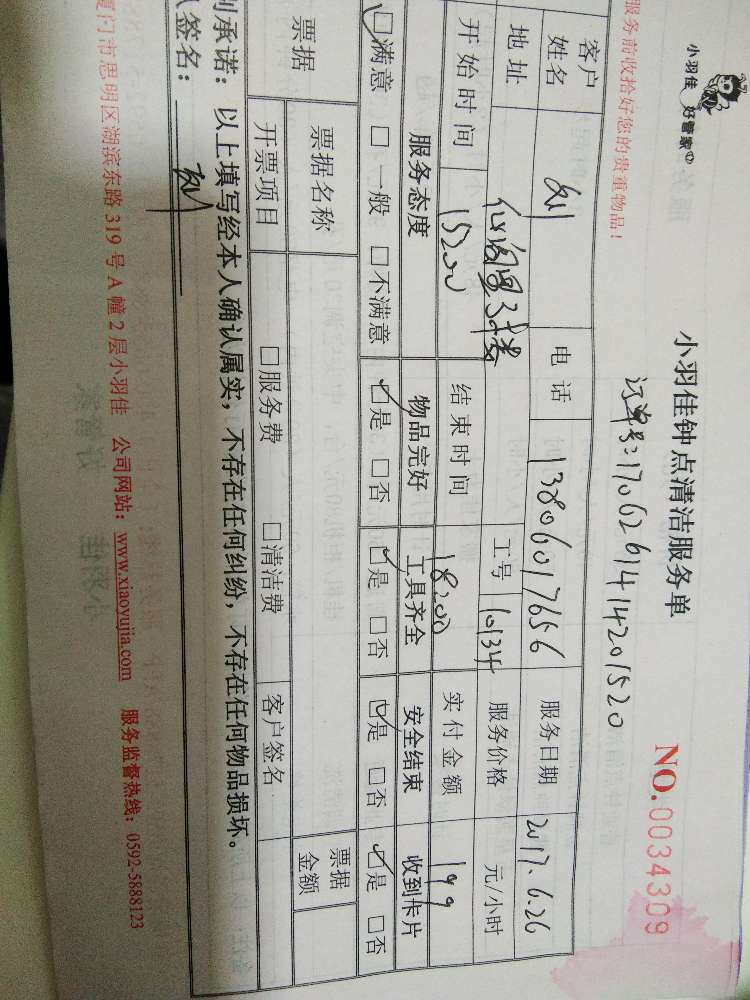 小羽佳 好管家
小羽佳钟点清洁服务单
NO.0034309
服务前收拾好您的贵重物品！
订单号:1706261414201520
客户姓名 刘 电话 13806017656 服务日期 2017.6.26
地址 仙阁里 工号 10134 服务价格 元/小时
开始时间 15:00 结束时间 18:00 实付金额 199
服务态度 物品完好 工具齐全 安全结束 收到卡片
☑满意 □一般 □不满意 ☑是 □否 ☑是 □否 ☑是 □否 ☑是 □否
票据 票据名称 票据金额
开票项目 □服务费 □清洁费 客户签名
承诺：以上填写经本人确认属实，不存在任何纠纷，不存在任何物品损坏。
签名：刘
厦门市思明区湖滨东路319号A幢2层小羽佳 公司网站：www.xiaoyujia.com 服务监督热线：0592-5888123